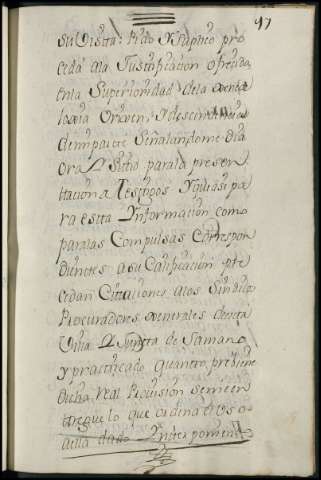 47
su Vista: Pido
ceda ala Justificacion ofrecida
enla Superioridad dela
Origen, y descendencia
de mi parte Señalandome dia
ora y sitio parala presen
tacion a Testigos y que asi pa
ra esta Informacion como
paralas Compulsas Correspon
dientes a su Calificacion pre
cedan Citaciones alos Sindicos
Procuradores Generales de esta
Villa y Junta de Samano
y practicado quanto previene
dicha real Provision se me en
tregue lo que